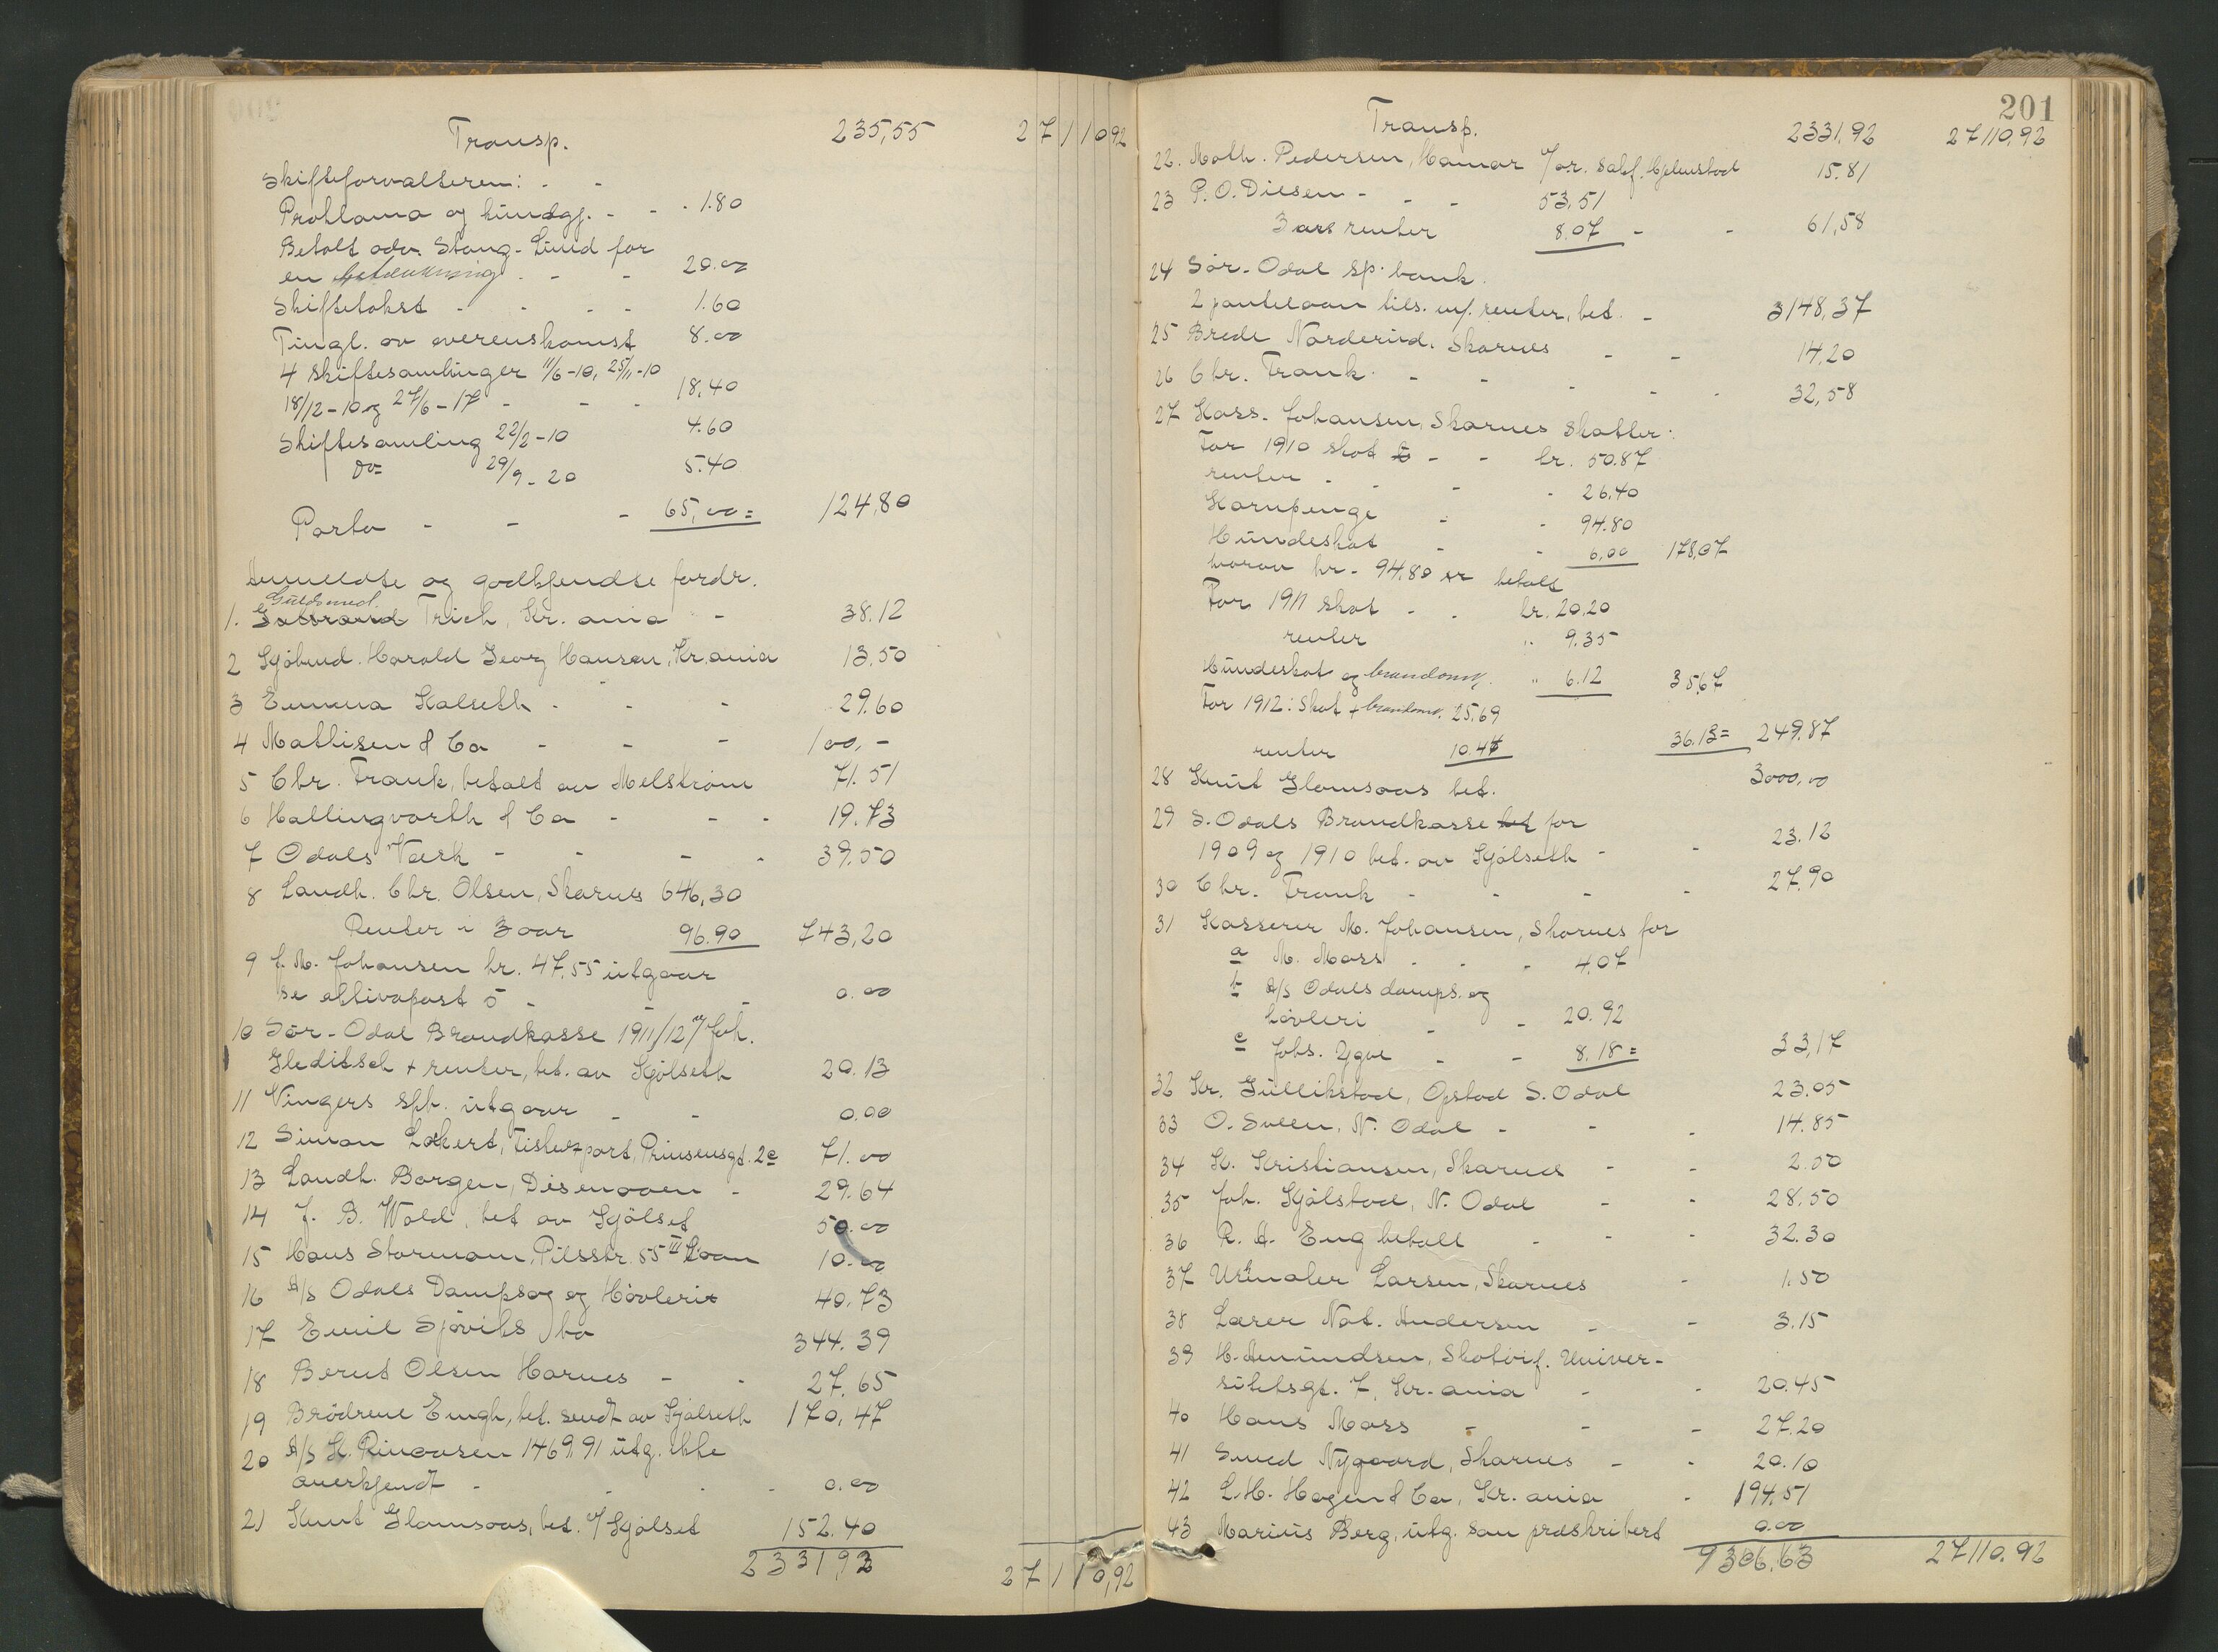 Transp. 235,55 27110,92
Skifteforvalteren: - -
Proklama og kundgj. - - - 1.80
Betalt adv. Stang-Lund for
en betænkning - - 20.00
Skiftetakst - - - - 1.60
Tingl. av overenskomst 8.00
4 skiftesamlinger 11/6-10, 25/11-10
18/12-10 og 27/6-17 - - - 18,40
Skiftesamling 22/2-10 4.60
do= 29/9-20 5.40
Porto - - - 65,00 = 124,80
Anmeldte og godkjendte fordr.
Guldsmed.
1. Trich, Kr.ania - 38.12
2 Harald Georg Hansen, Kr.ania 13,50
3 Emma Kalseth - - - 29.60
4 Mathisen & Co - - - 100,-
5 Chr. Frank, betalt av Melström 71.51
6 Hallingvorth & Co - - - 19.73
7 Odals Værk - - - - 39.50
8 Landh. Chr. Olsen, Skarnes 646,30
Renter i 3 aar 96.90 743,20
9 J. M. Johansen kr. 47,55 utgaar
se aktivapost 5 - - 0.00
10 Sør-Odal Brandkasse 1911/12 Joh.
Gleditsch + renter, bet. av Kjölseth 20.13
11 Vingers spb. utgaar - - 0.00
12 Simon Prinsensgt. 2c 71.00
13 Landh. Borgen, Disenaaen - 29.64
14 J. B. Wold, bet av Kjölset 50.00
15 Hans Stormoen, Pilsstr. 55 III 10.00
16 A/s Odals Dampsag og Høvleri 40.73
17 Emil Sjøviks bo 344.39
18 Bernt Olsen Harnes - - 27.65
19 Brödrene Engh, bet. sendt av Kjölseth 170,47
20 A/s K. Rinansen 1469.91 utg. ikke
anerkjendt - - - - 0.00
21 Knut Glomsaas, bet. Kjölset 152.40
2331,92 27110,92
201
Transp. 2331,92 27110,92
22. Math. Pedersen, Hamar 15.81
23 P. O. Disen - - - 53,51
3 aars renter 8.07 - - 61,58
24 Sör-Odal sp.bank.
2 pantelaan tils. m/. renter, bet. - 3148,37
25 Brede Norderud. Skarnes - - 14,20
26 Chr. Frank. - - - - - 32,58
27 Kass. Johansen, Skarnes Skatter:
For 1910 skat - - kr. 50.87
renter - - - - 26,40
Kornpenge - - 94.80
Hundeskat - - 6,00 178,07
hvorav kr. 94.80 er betalt
For 1911 skat - - kr. 20,20
renter " 9.35
Hundeskat og " 6.12 35,67
For 1912: Skat + 25,69
renter 10.44 36.13 = 249.87
28 Knut Glomsaas bet. 3000,00
29 S. Odals Brandkasse bet for
1909 og 1910 bet. av Kjölseth - - 23.12
30 Chr. Frank - - - - 27.90
31 Kasserer M. Johansen, Skarnes for
a M. Moss - - - 4,07
b A/s Odals damps. og
hövleri - - 20.92
c Johs. Ygve - - 8.18 = 33,17
32 Kr. Gullikstad, Opstad S. Odal 23.05
33 O. Sveen, N. Odal - - - 14.85
34 K. Kristiansen, Skarnes - - 2.00
35 Joh. Kjölstad, N. Odal - - 28.50
36 R. A. Eng betalt - - - 32.30
37 Urmaker Larsen, Skarnes - 1.50
38 Lærer Nat. Andersen - - 3.15
39 H. Amundsen, Skotøif. Univer-
sitetsgt. 7, Kr.ania - - 20.45
40 Hans Moss - - - 27.20
41 Smed Nygaard, Skarnes - - 20.10
42 L. H. Hagen & Co, Kr.ania - 194.51
43 Marius Berg, utg. som præskribert 0.00
9306,63 27110.92